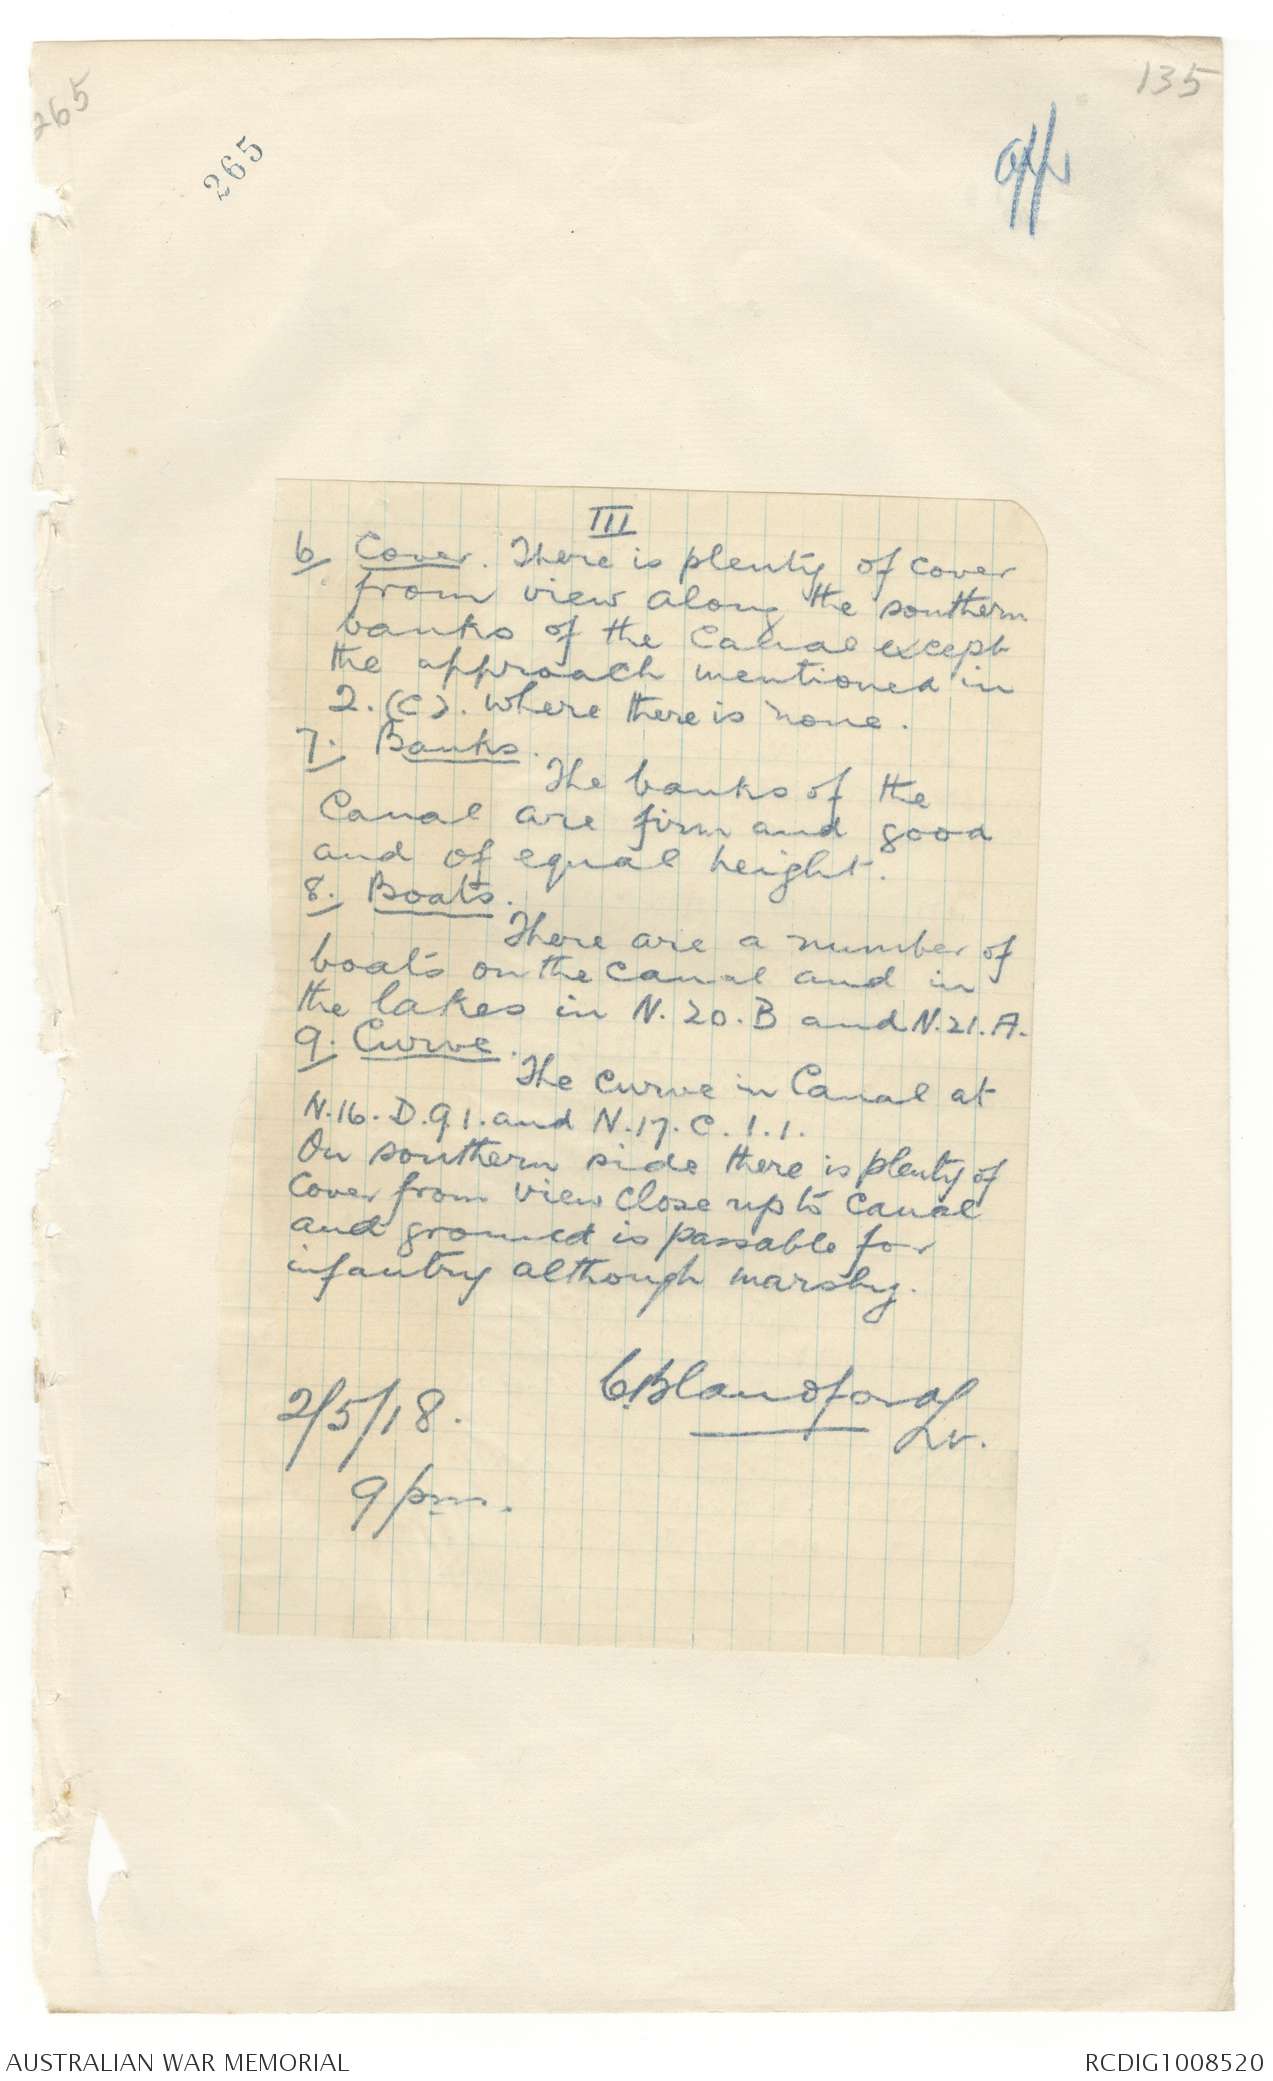 265
135
265
III
6/ Cover. There is plenty of cover
from view along the southern
banks of the Canal except
the approach mentioned in
2.(C). where there is none.
7. Banks.
The banks of the
Canal are firm and good
and of equal height.
8. Boats.
There are a number of
boats on the canal and in
the lakes in N.20.B and N.21.A.
9. Curve.
The curve in Canal at
N.16.D.9.1. and N.17.C.1.1.
On southern side there is plenty of
cover from view close up to canal
and ground is passable for
infantry although marshy.
C. Blandford
Lt.
2/5/18.
9 pm.
AUSTRALIAN WAR MEMORIAL
RCDIG1008520